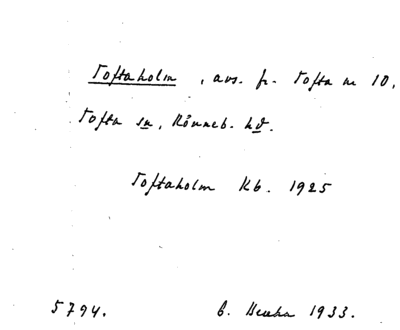 Toftaholm, avs. fr. Tofta nr 10,
Tofta sn, Rönneb. hd.
Toftaholm Kb. 1925
5794. B. 1933.